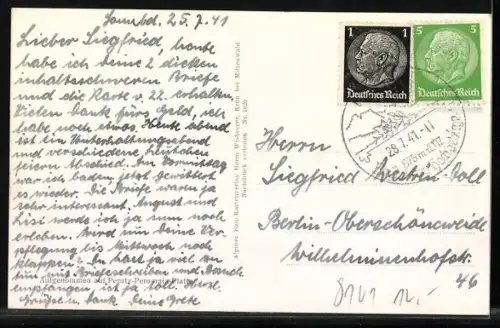 Sonnabd. 25.7.41
Lieber Siegfried, heute
habe ich Deine 2 dicken
inhaltsschweren Briefe
und die Karte v. 22. erhalten.
Vielen Dank fürs Geld, ich
habe noch etwas. Heute abend
ist ein Unterhaltungsabend
und verschiedene
feiern Abschied. Am Vormittag
war ich baden, jetzt gewittert
es wieder. Die Briefe waren ja
sehr interessant, August und
Lisi werde ich ja nun noch
erleben. Wird nun Deine Ver-
pflegung bis Mittwoch noch
klappen? Du hast ja viel zu
tun mit Briefeschreiben und Damen
empfangen, ist ja toll. Herzl.
Grüße u. Dank Deine Grete
Alpiner Foto-Kunstverlag Heinz
Nachdruck verboten Nr. 1020
Aufgenommen auf Perutz-Peromnia-Platte
1
Deutsches Reich
5
Deutsches Reich
28.7.41.-11
Herrn
Siegfried
Berlin-Oberschöneweide
Wilhelminenhofstr.
46
8141 12,-